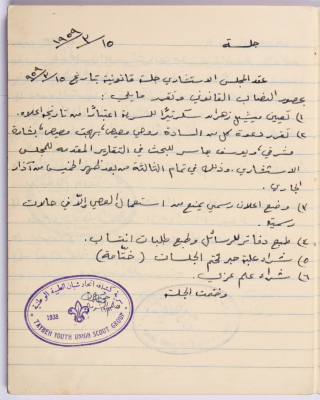 جلسة ١٥/٣/١٩٥٩
عقد المجلس الاستشاري جلسة قانونية بتاريخ ١٥/٣/٥٩
بحضور النصاب القانوني وتقرر ما يلي:
١) تعيين ميشيل زهران سكرتيرًا للسرية اعتبارًا من تاريخه اعلاه.
٢) تقرر دعوة كل من السادة روحي مصيص، بهجت مصيص، بشارة
يوسف جاسر للبحث في التقارير المقدمه للمجلس
الاستشاري، وذلك في تمام الثالثة من بعد ظهر الخميس من آذار
الجاري.
٣) وضع اعلان رسمي يمنع من استعمال العصي الا في حالات
رسمية.
٤) طبع دفاتر للرسائل وطبع طلبات انتساب.
٥) شراء علبة حبر لختم الجلسات (ختّامة)
٦) شراء علم عربي.
وختمت الجلسة
فرقة كشافة اتحاد شبان الطيبة الوطنية
1938
TAYBEH YOUTH UNION SCOUT GROUP